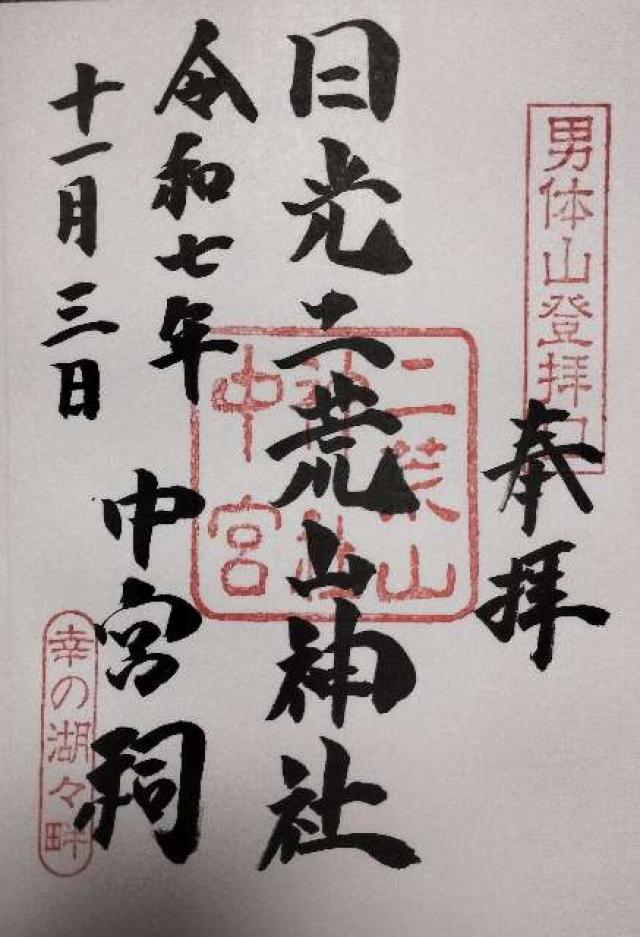 男体山登拝口
奉拝
日光二荒山神社
二荒山
神社
中宮
令和七年
中宮祠
十一月三日
幸の湖々畔